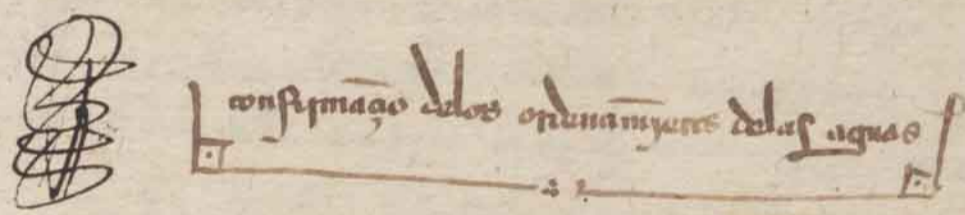 confirmaçio͂ delos ordenamj͂entos delas aguas